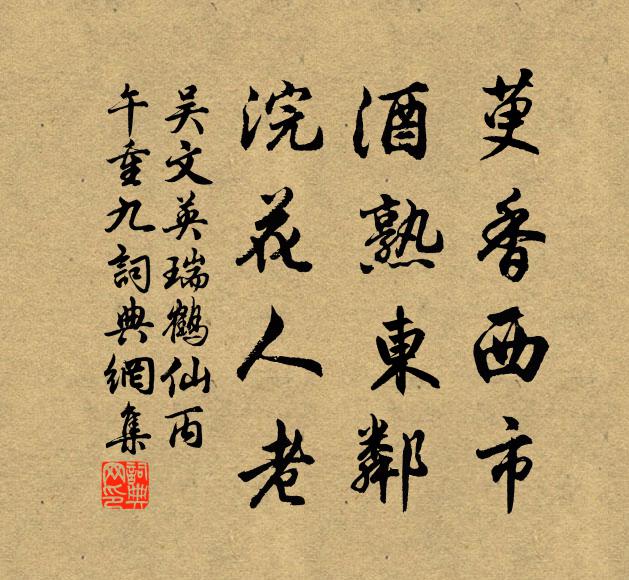 萸香西市
酒熟東鄰
浣花人老
吳文英瑞鶴仙丙
午重九詞典網集
詞典网印